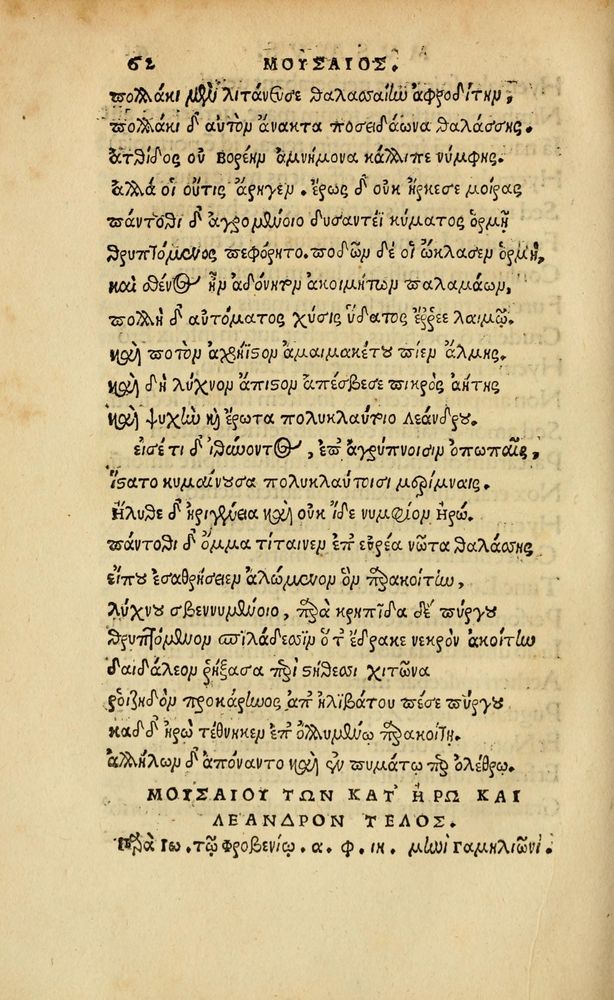 62 ΜΟΥΣΑΙΟΣ.
πολλάκι μὲν λιτάνευσε θαλασσαίην ἀφροδίτην,
πολλάκι δ' αὐτὸν ἄνακτα ποσειδάωνα θαλάσσης.
ἀτθίδος οὐ βορέην ἀμνήμονα κάλλιπε νύμφης.
ἀλλά οἱ οὔτις ἄρηγεν. ἔρως δ' οὐκ ἤρκεσε μοίρας
πάντοθι δ' ἀγρομένοιο δυσαντέϊ κύματος ὁρμῇ
θρυπτόμενος πεφόρητο. ποδῶν δέ οἱ ὤκλασεν ὁρμή,
καὶ σθένος ἦν ἀδόνητον ἀκοιμήτων παλαμάων,
πολλὴ δ' αὐτόματος χύσις ὕδατος ἔρρεε λαιμῷ.
καὶ ποτὸν ἀχρήϊστον ἀμαιμακέτου πίεν ἅλμης.
καὶ δὴ λύχνον ἄπιστον ἀπέσβεσε πικρὸς ἀήτης
καὶ ψυχὴν καὶ ἔρωτα πολυκλαύτοιο λεάνδρου.
εἰσέτι δ' ἰθύοντος, ἐπ' ἀγρύπνοισιν ὀπωπαῖς,
ἵστατο κυμαίνουσα πολυκλαύτοισι μερίμναις.
ἤλυθε δ' ἠριγένεια καὶ οὐκ ἴδε νυμφίον ἡρώ.
πάντοθι δ' ὄμμα τίταινεν ἐπ' εὐρέα νῶτα θαλάσσης
εἴπου ἐσαθρήσειεν ἀλώμενον ὃν παρακοίτην,
λύχνου σβεννυμένοιο, παρὰ κρηπῖδα δέ πύργου
θρυπτόμενον σπιλάδεσσιν ὅτ' ἔδρακε νεκρὸν ἀκοίτην
δαιδάλεον ῥήξασα περὶ στήθεσσι χιτῶνα
ῥοιζηδὸν προκάρηνος ἀπ' ἠλιβάτου πέσε πύργου
καδδ' ἡρὼ τέθνηκεν ἐπ' ὀλλυμένῳ παρακοίτῃ.
ἀλλήλων δ' ἀπόναντο καὶ ἐν πυμάτῳ περ ὀλέθρῳ.
ΜΟΥΣΑΙΟΥ ΤΩΝ ΚΑΤ' ΗΡΩ ΚΑΙ
ΛΕΑΝΔΡΟΝ ΤΕΛΟΣ.
Παρὰ Ἰω. τῷ Φροβενίῳ. α. φ. ιη. μηνὶ γαμηλιῶνι.